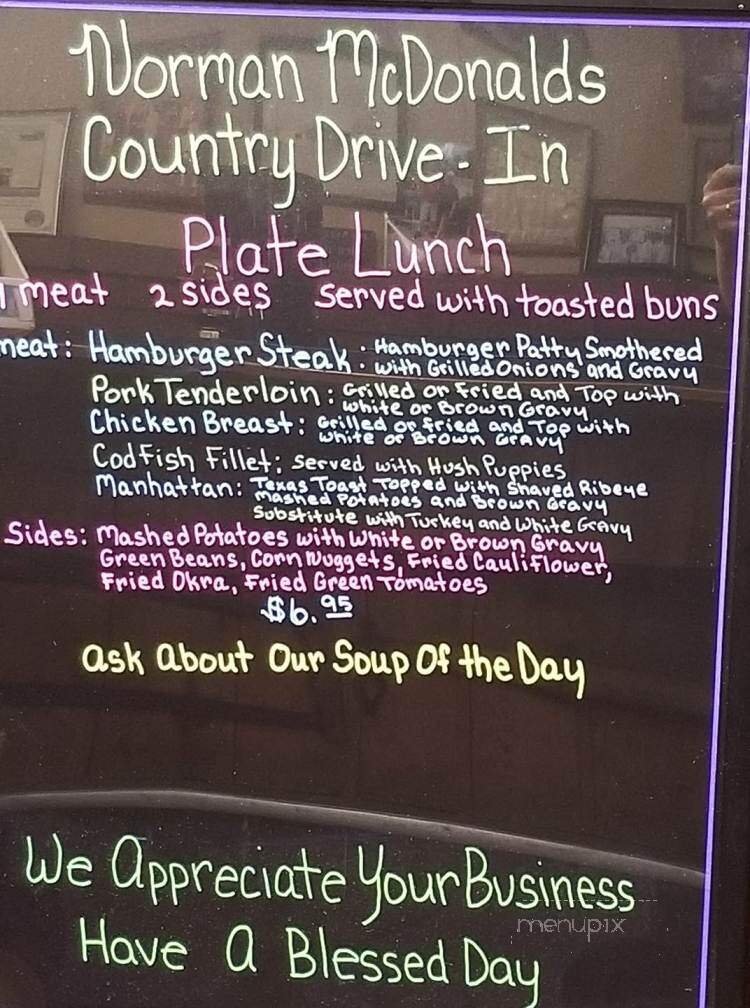 Norman McDonalds
Country Drive-In
Plate Lunch
1 meat 2 sides served with toasted buns
meat: Hamburger Steak: Hamburger Patty Smothered
with Grilled Onions and Gravy
Pork Tenderloin: Grilled or Fried and Top with
White or Brown Gravy
Chicken Breast: Grilled or fried and Top with
White or Brown Gravy
Cod Fish Fillet: Served with Hush Puppies
Manhattan: Texas Toast Topped with Shaved Ribeye
Mashed Potatoes and Brown Gravy
Substitute with Turkey and White Gravy
Sides: Mashed Potatoes with White or Brown Gravy
Green Beans, Corn Nuggets, Fried Cauliflower,
Fried Okra, Fried Green Tomatoes
$6.95
Ask About Our Soup Of the Day
We Appreciate Your Business
menupix
Have A Blessed Day